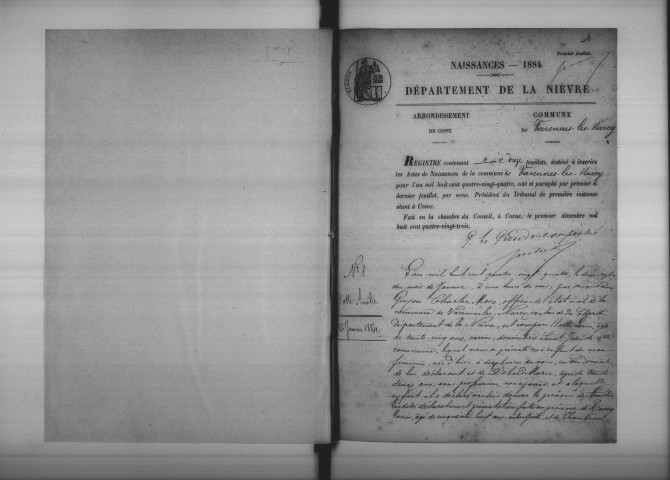 Premier feuillet.
NAISSANCES — 1884
DÉPARTEMENT DE LA NIÈVRE
ARRONDISSEMENT
DE COSNE
COMMUNE
de Varennes-les-Narcy
REGISTRE contenant douze feuillets, destiné à inscrire
les Actes de Naissances de la commune de Varennes-les-Narcy
pour l'an mil huit cent quatre-vingt-quatre, coté et paraphé par premier et
dernier feuillet, par nous, Président du Tribunal de première instance
séant à Cosne.
Fait en la chambre du Conseil, à Cosne, le premier décembre mil
huit cent quatre-vingt-trois.
P. le Président empêché
N° 1
Amélie
Janvier 1884
L'an mil huit cent quatre vingt quatre, le
du mois de Janvier, à une heure du soir, par devant nous
Charles Marc, officier de l'état civil de la
commune de Varennes-les-Narcy, canton de la Charité
département de la Nièvre, est comparu
de trente cinq ans, carrier, demeurant
commune, lequel nous a présenté un enfant du sexe
féminin, né d'hier à heures du soir, en son domicile
de lui déclarant et de Marie, âgée de trente
deux ans, son profession, son épouse et a laquelle
enfant il a déclaré vouloir donner le prénom de Amélie
Lesdites déclaration et présentation faites en présence de
Louis, âgé de cinquante huit ans, et de